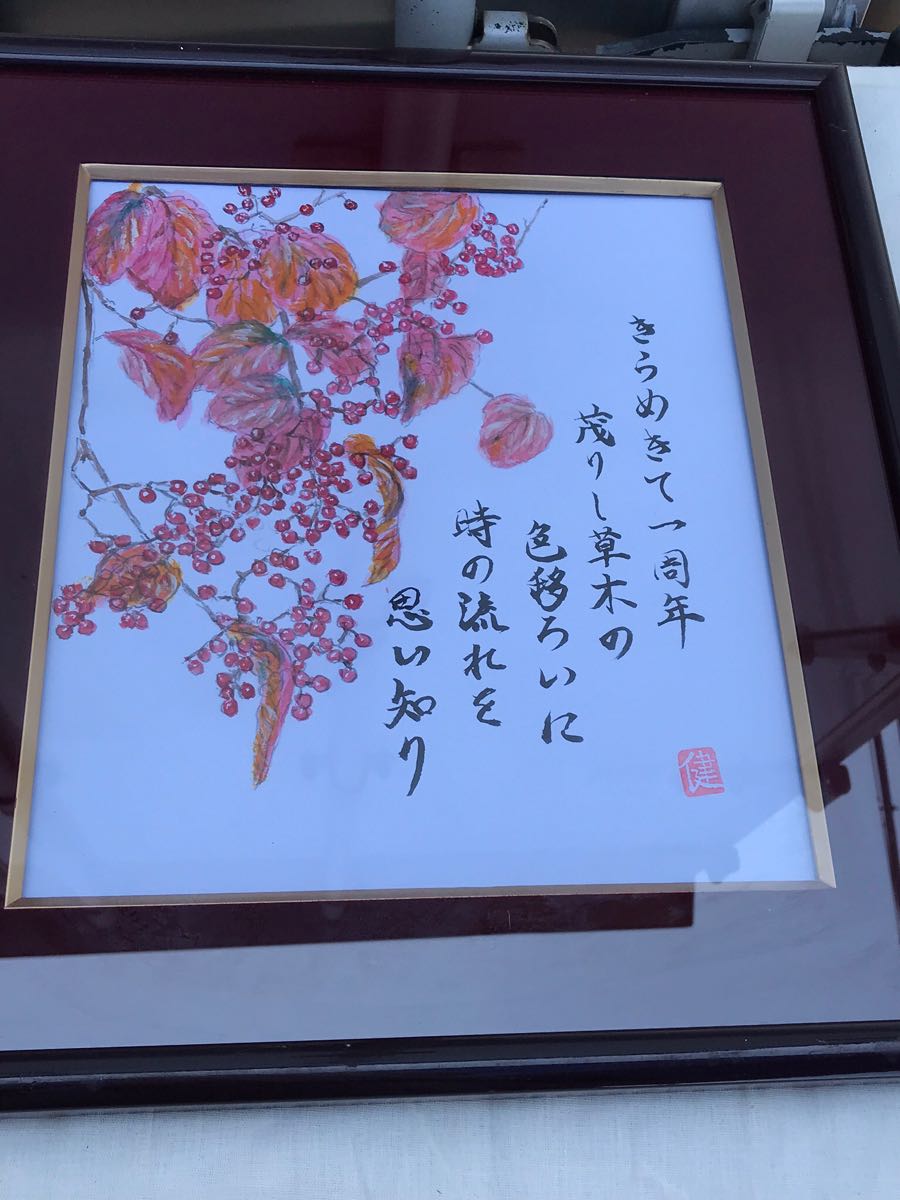 きらめきて一周年
茂りし草木の
色移ろいに
時の流れを
思い知り
健